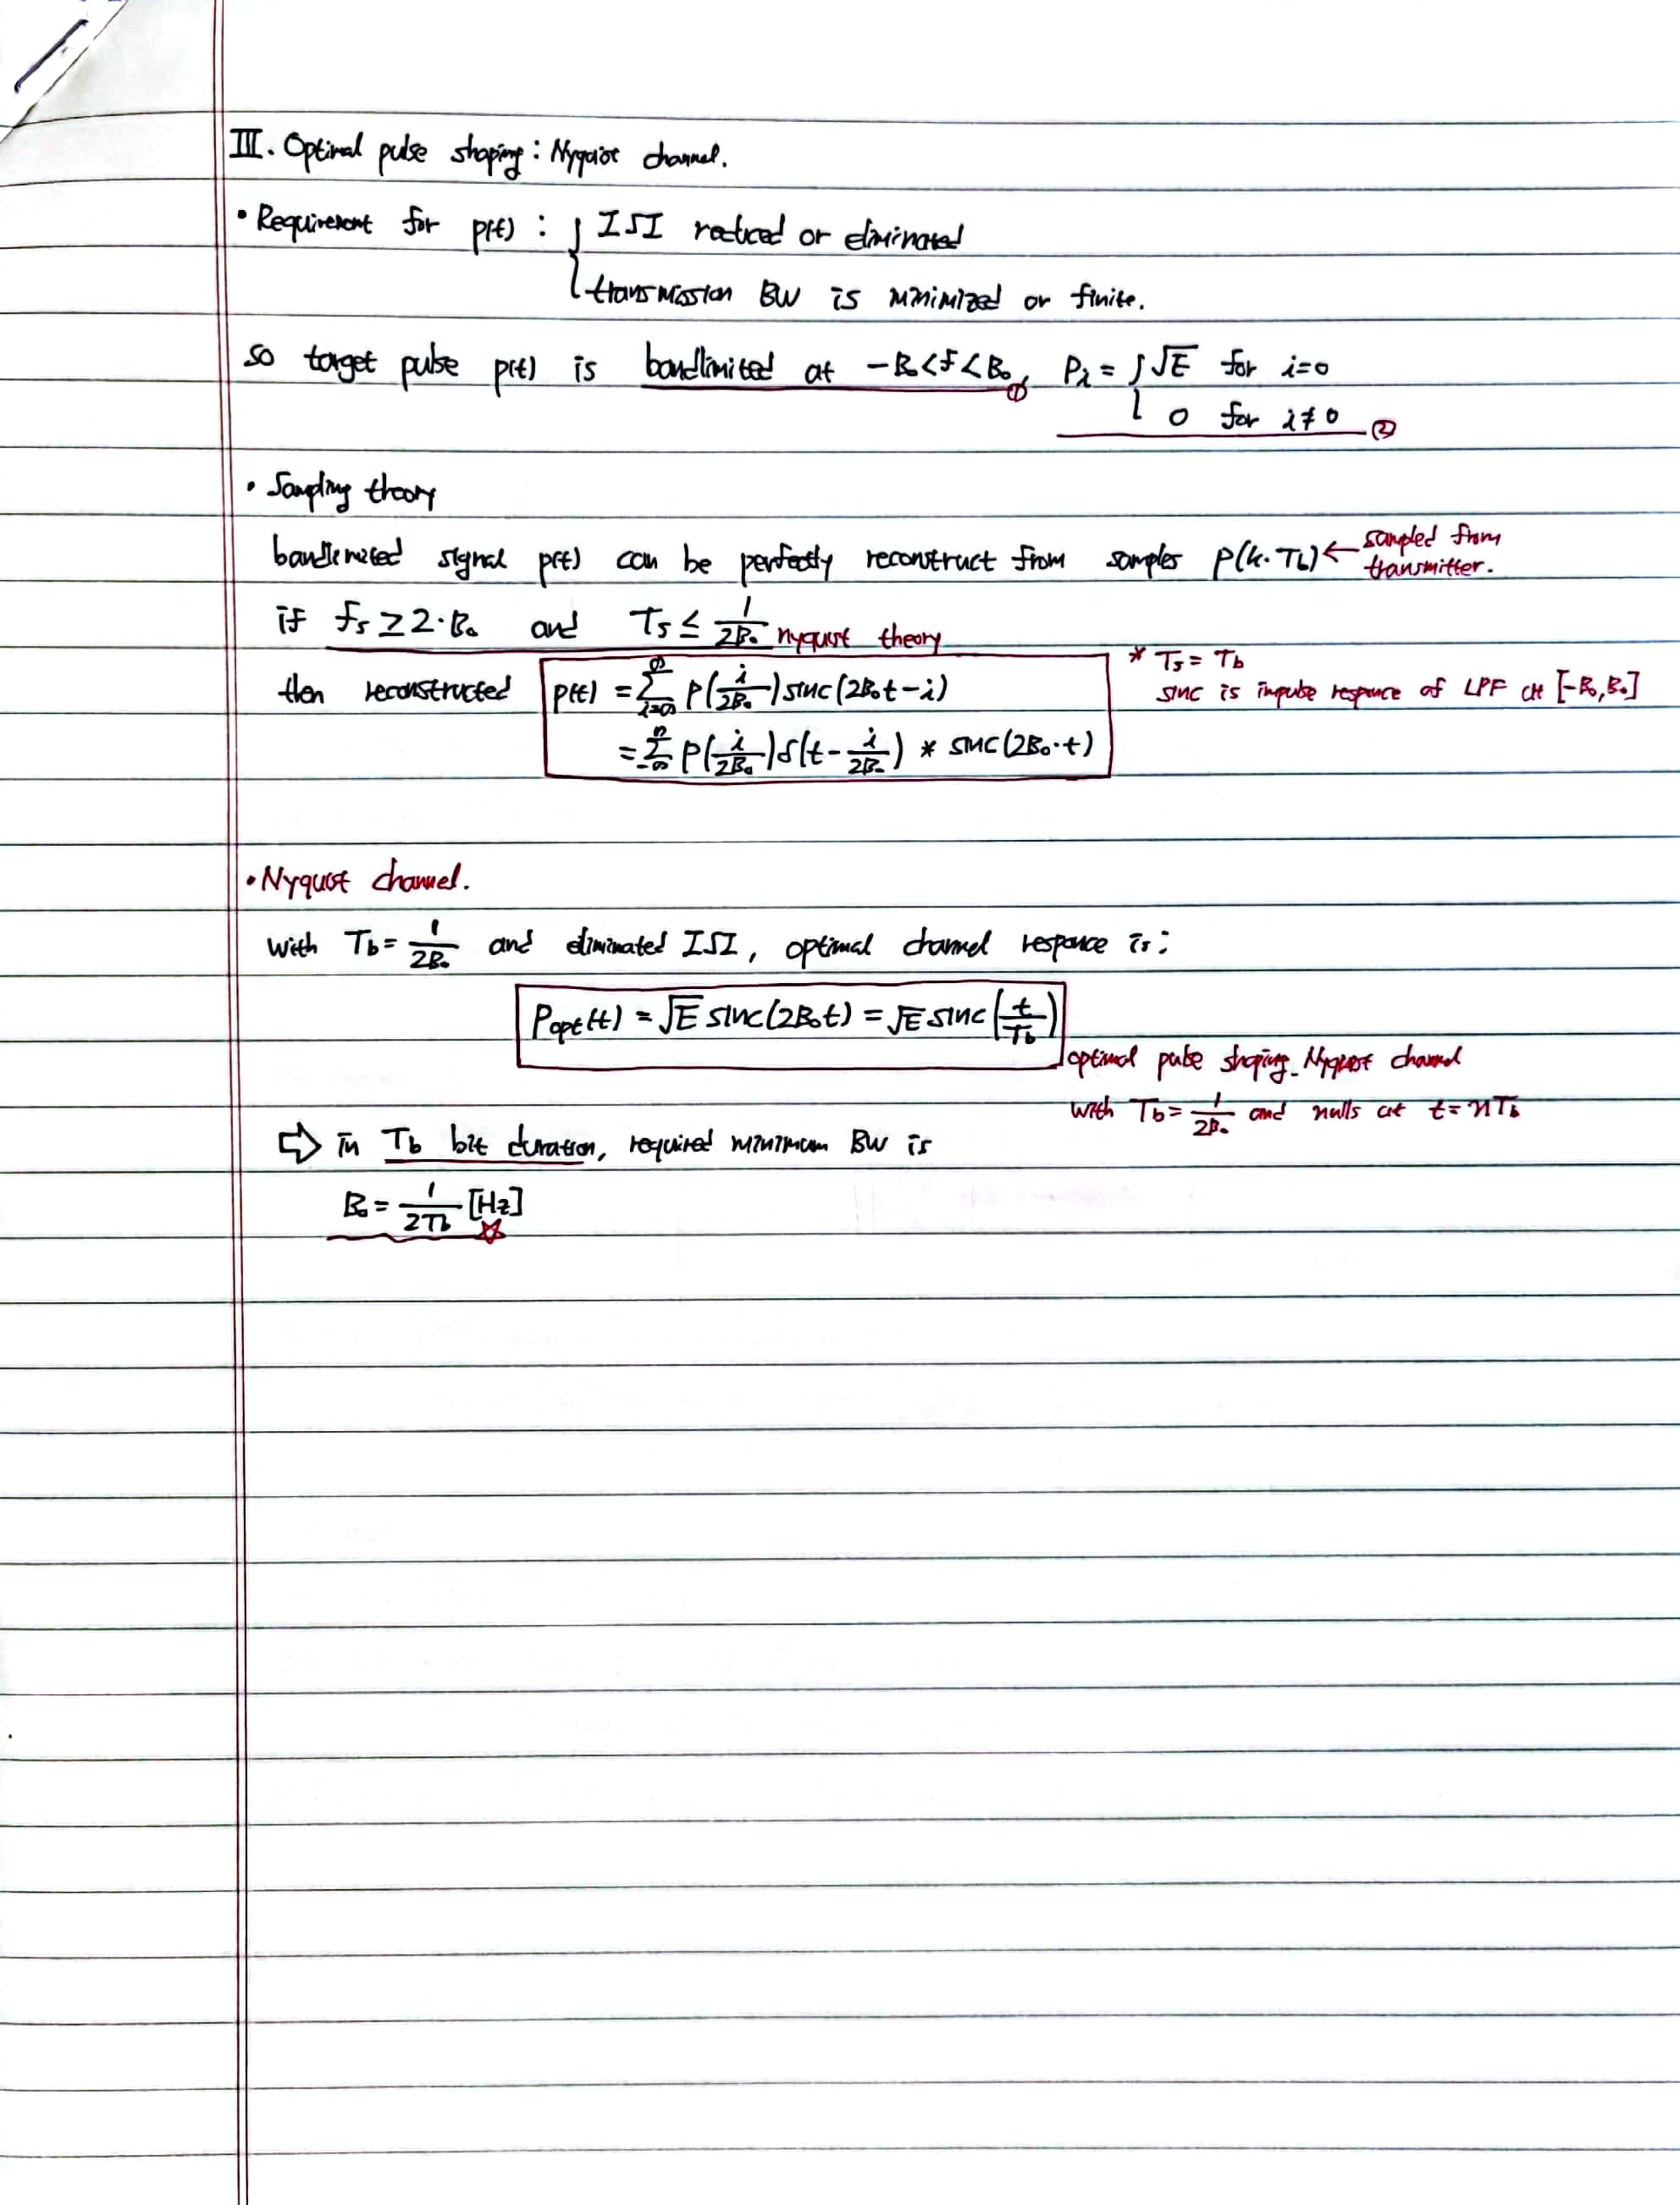 III. Optimal pulse shaping : Nyquist channel.
• Requirement for p(t) : { ISI reduced or eliminated
transmission BW is minimized or finite.
so target pulse p(t) is bandlimited at -B₀<f<B₀ ①, Pᵢ = { √E for i=0
0 for i≠0 ②
• Sampling theory
bandlimited signal p(t) can be perfectly reconstruct from samples p(k·Tb) ← sampled from
transmitter.
if fs ≥ 2·B₀ and Ts ≤ 1/2B₀ nyquist theory
* Ts = Tb
then reconstructed p(t) = Σ_{i=∞}^{∞} p(i/2B₀) sinc(2B₀t-i)
sinc is impulse responce of LPF at [-B₀,B₀]
= Σ_{-∞}^{∞} p(i/2B₀) δ(t - i/2B₀) * sinc(2B₀·t)
• Nyquist channel.
with Tb = 1/2B₀ and eliminated ISI, optimal channel responce is :
Popt(t) = √E sinc(2B₀t) = √E sinc(t/Tb)
optimal pulse shaping_Nyquist channel
with Tb = 1/2B₀ and nulls at t = nTb
⇨ in Tb bit duration, required minimum BW is
B₀ = 1/2Tb [Hz] ☆